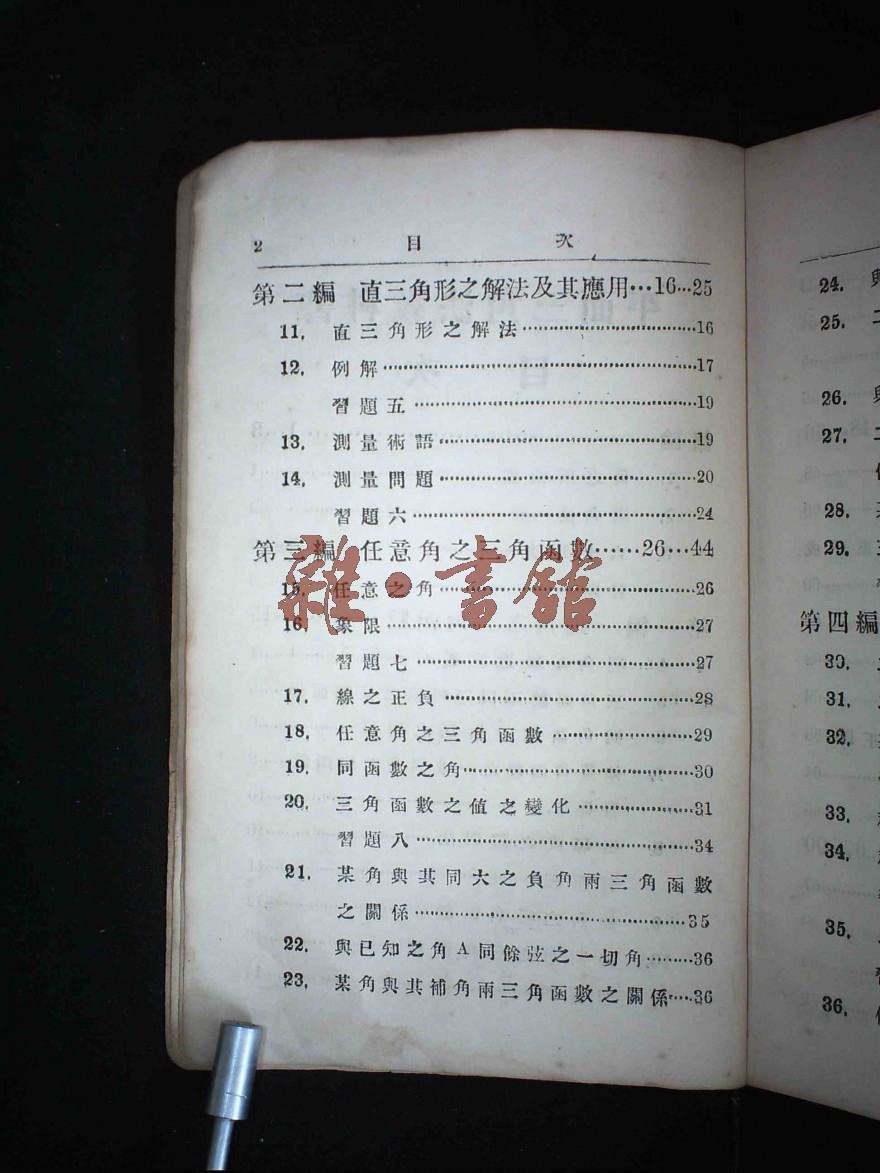 2 目 次
第二編 直三角形之解法及其應用…16…25
11. 直三角形之解法……16
12. 例解……17
習題五……19
13. 測量術語……19
14. 測量問題……20
習題六……24
第三編 任意角之三角函數……26…44
15. 任意之角……26
16. 象限……27
習題七……27
17. 線之正負……28
18. 任意角之三角函數……29
19. 同函數之角……30
20. 三角函數之値之變化……31
習題八……34
21. 某角與其同大之負角兩三角函數
之關係……35
22. 與已知之角A同餘弦之一切角……36
23. 某角與其補角兩三角函數之關係…36
雜·書館
24.
25.
26.
27.
28.
29.
第四編
30.
31.
32.
33.
34.
35.
36.